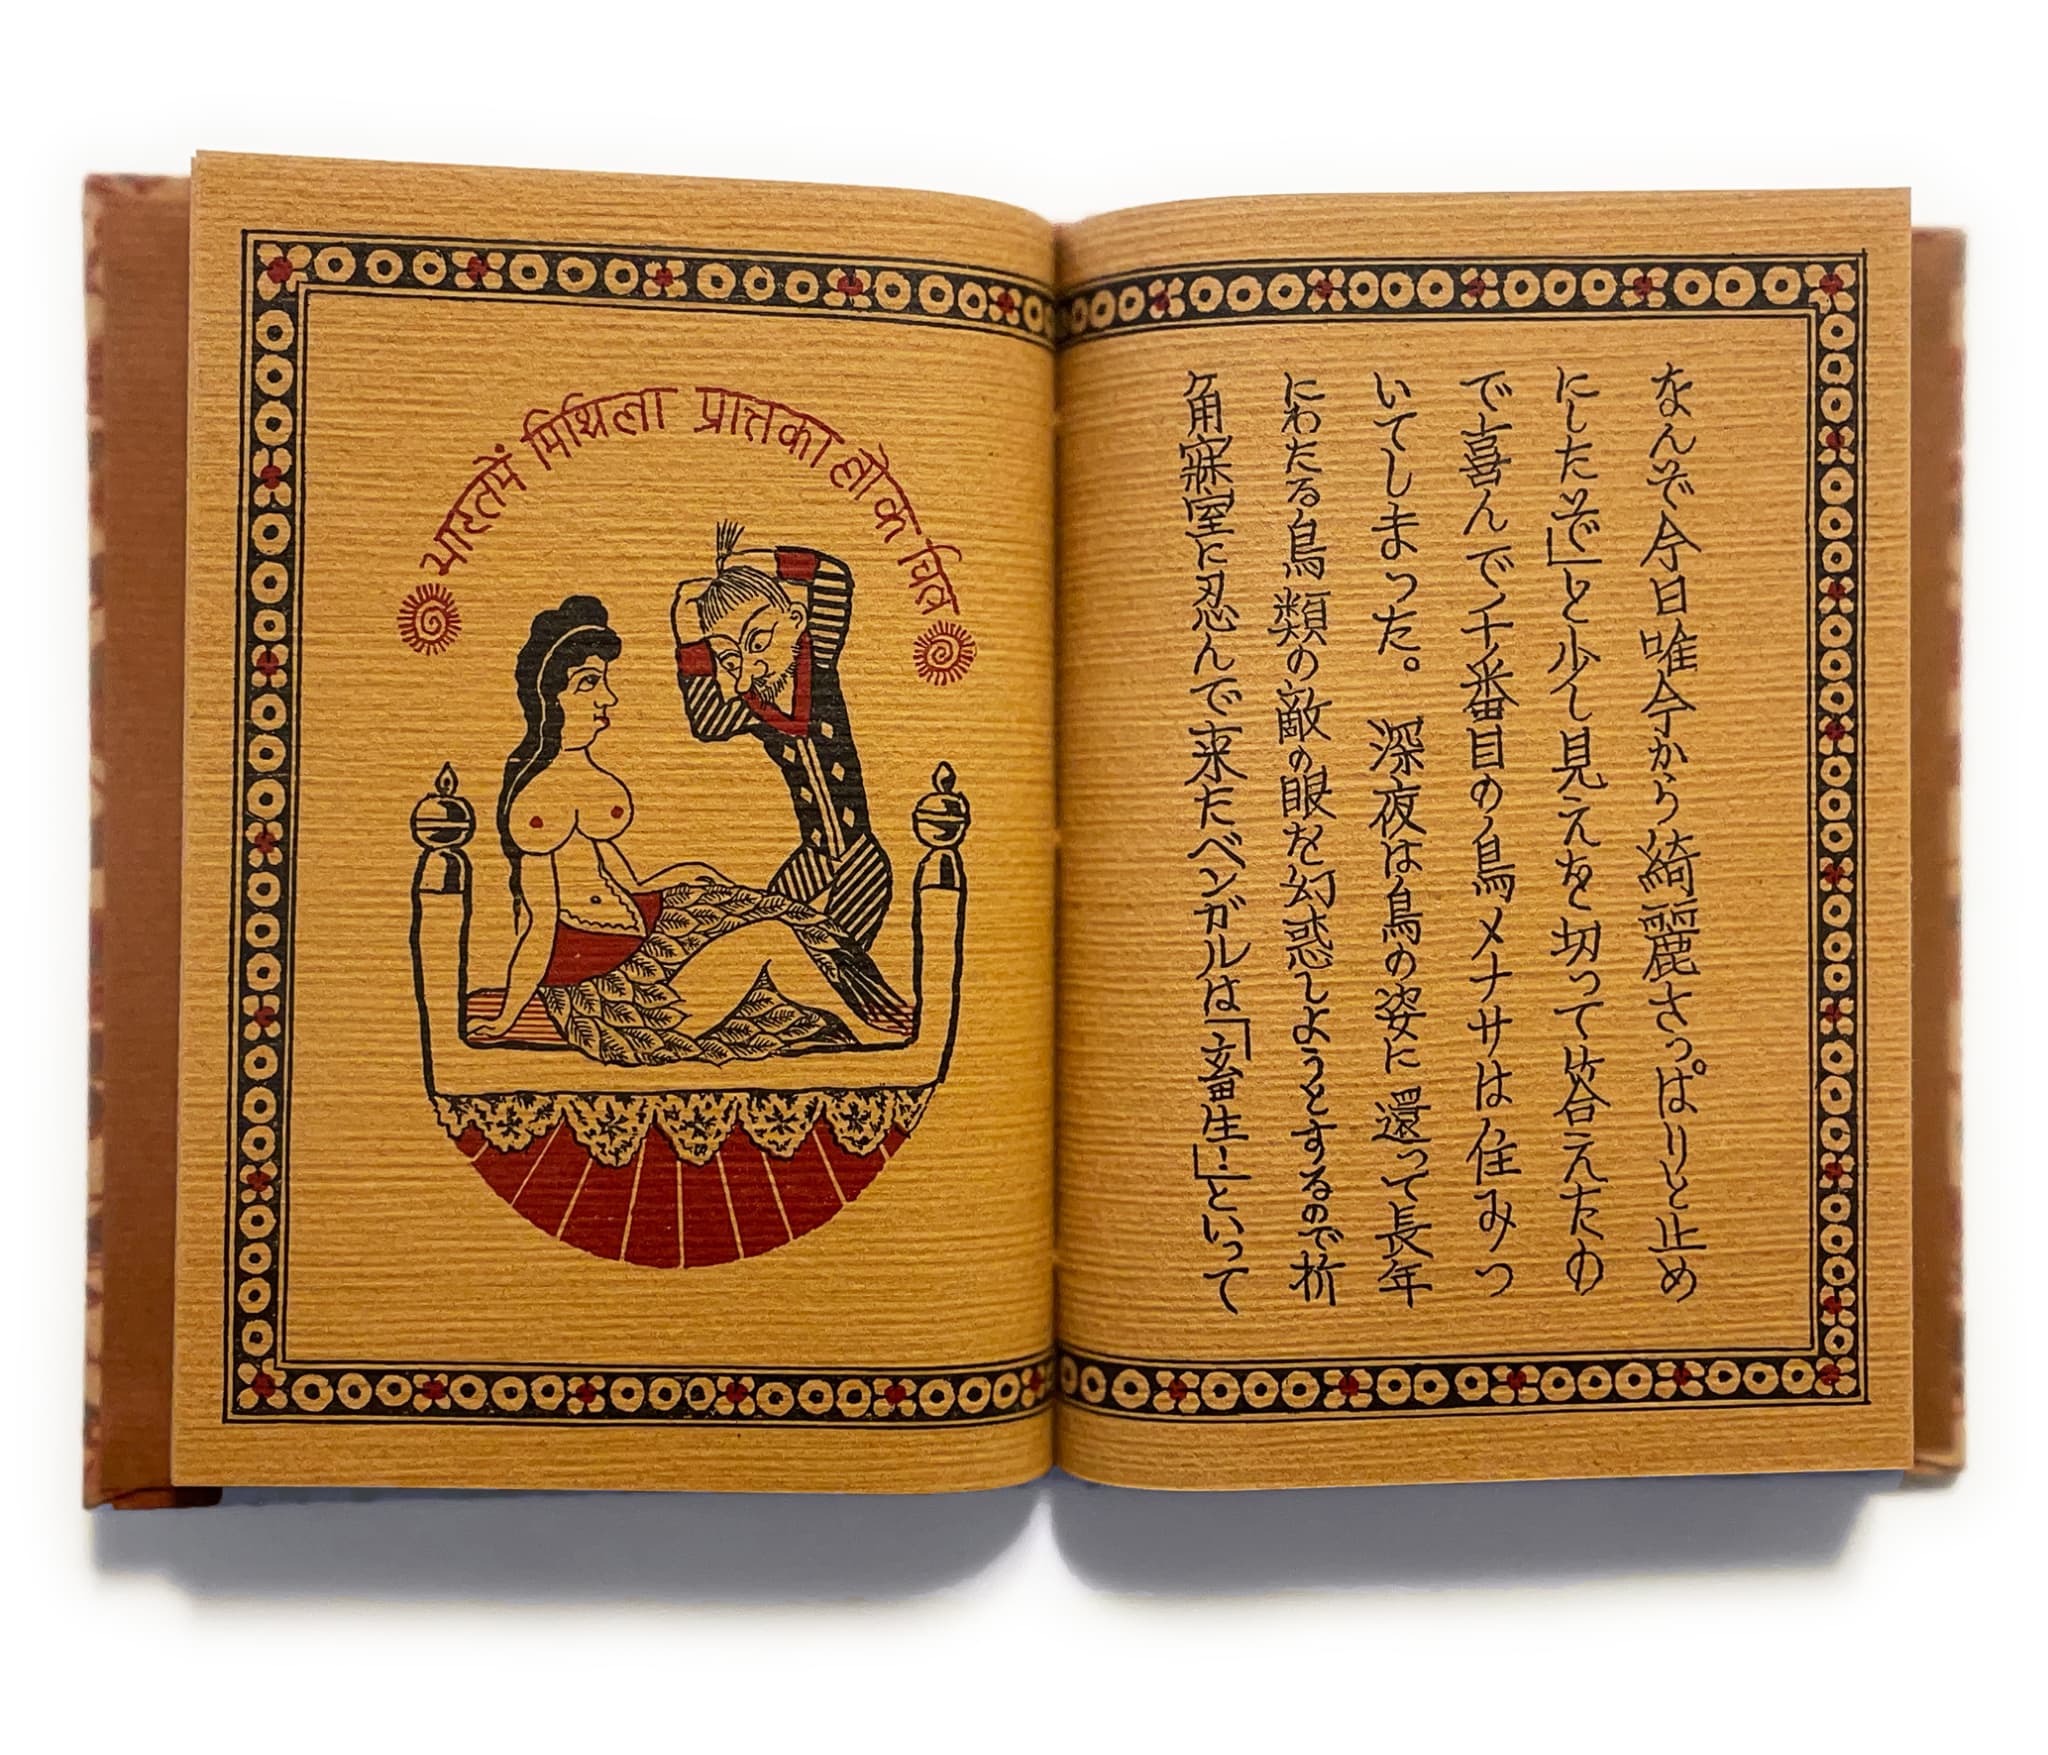 भारतमें मिथिला प्रात्तका लोक चित्र
なんぞ今日唯今から綺麗さっぱりと止め
にしたぞ」と少し見えを切って答えたの
で喜んで千番目の鳥メナサは住みつ
いてしまった。深夜は鳥の姿に還って長年
にわたる鳥類の敵の眼を幻惑しようとするので折
角寐室に忍んで来たベンガルは「畜生!」といって